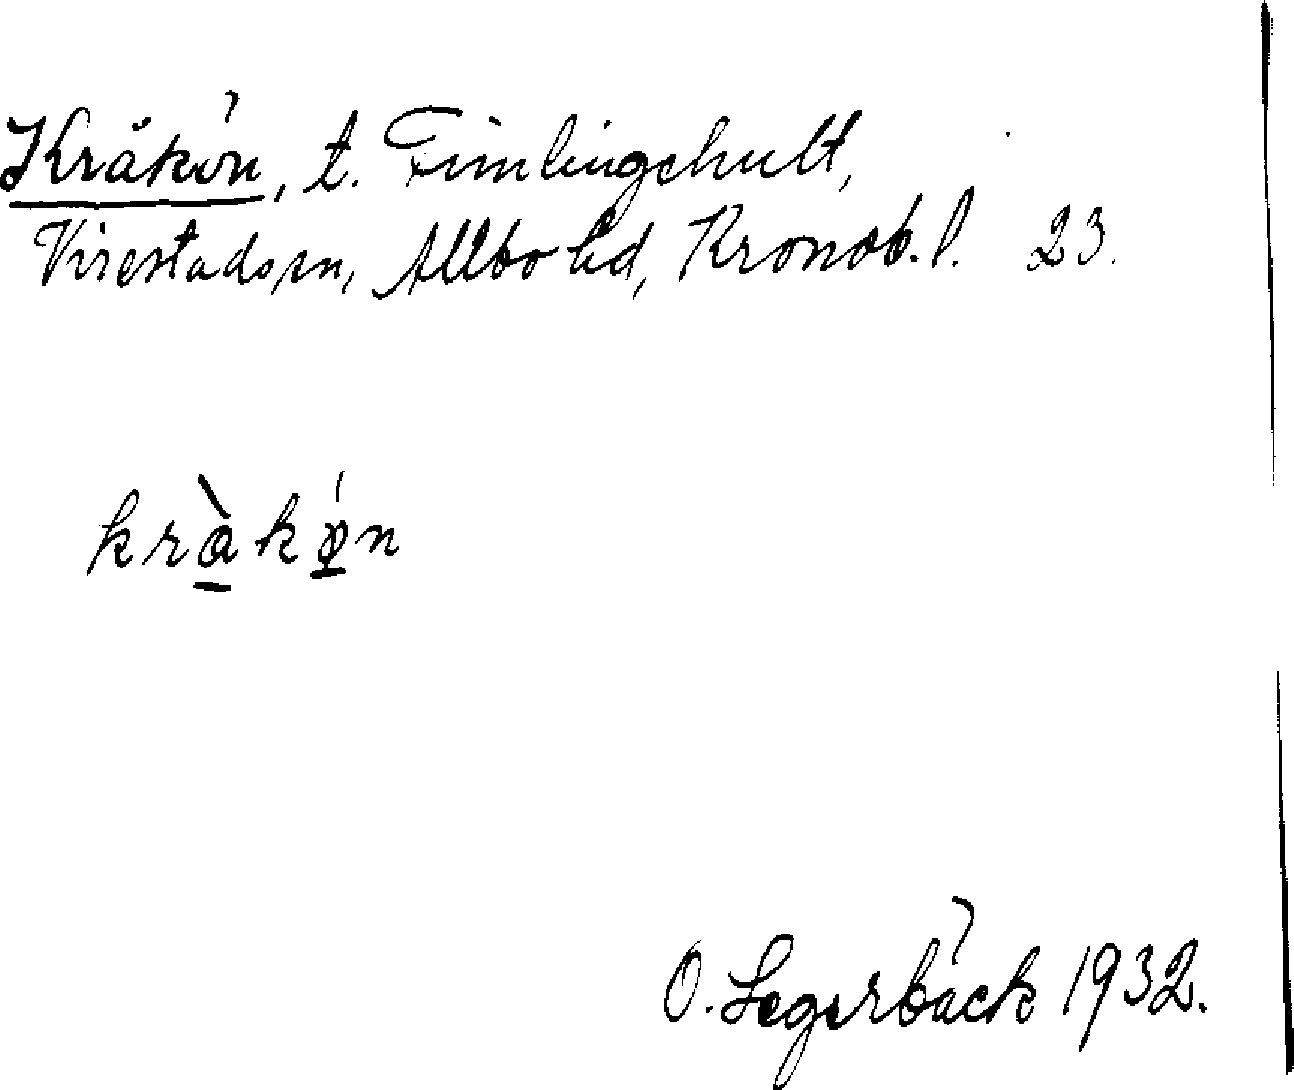 Kråkön, t. Fimlingehult,
Virestads sn, Allbo hd, Kronob. l. 23.
kràkǿn
O. Segerbäck 1932.